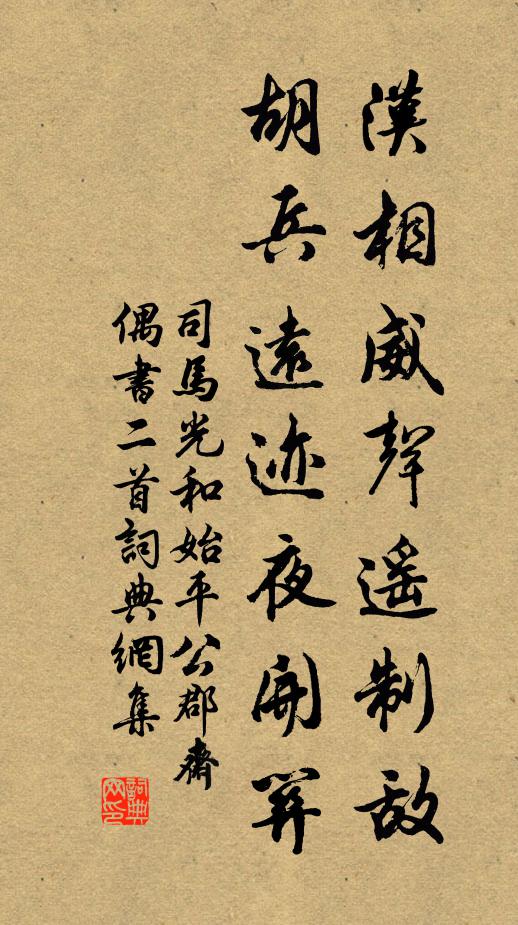 漢相威聲遥制敵
胡兵遠迹夜開關
司馬光和始平公郡齋
偶書二首詞典網集
詞典
网印